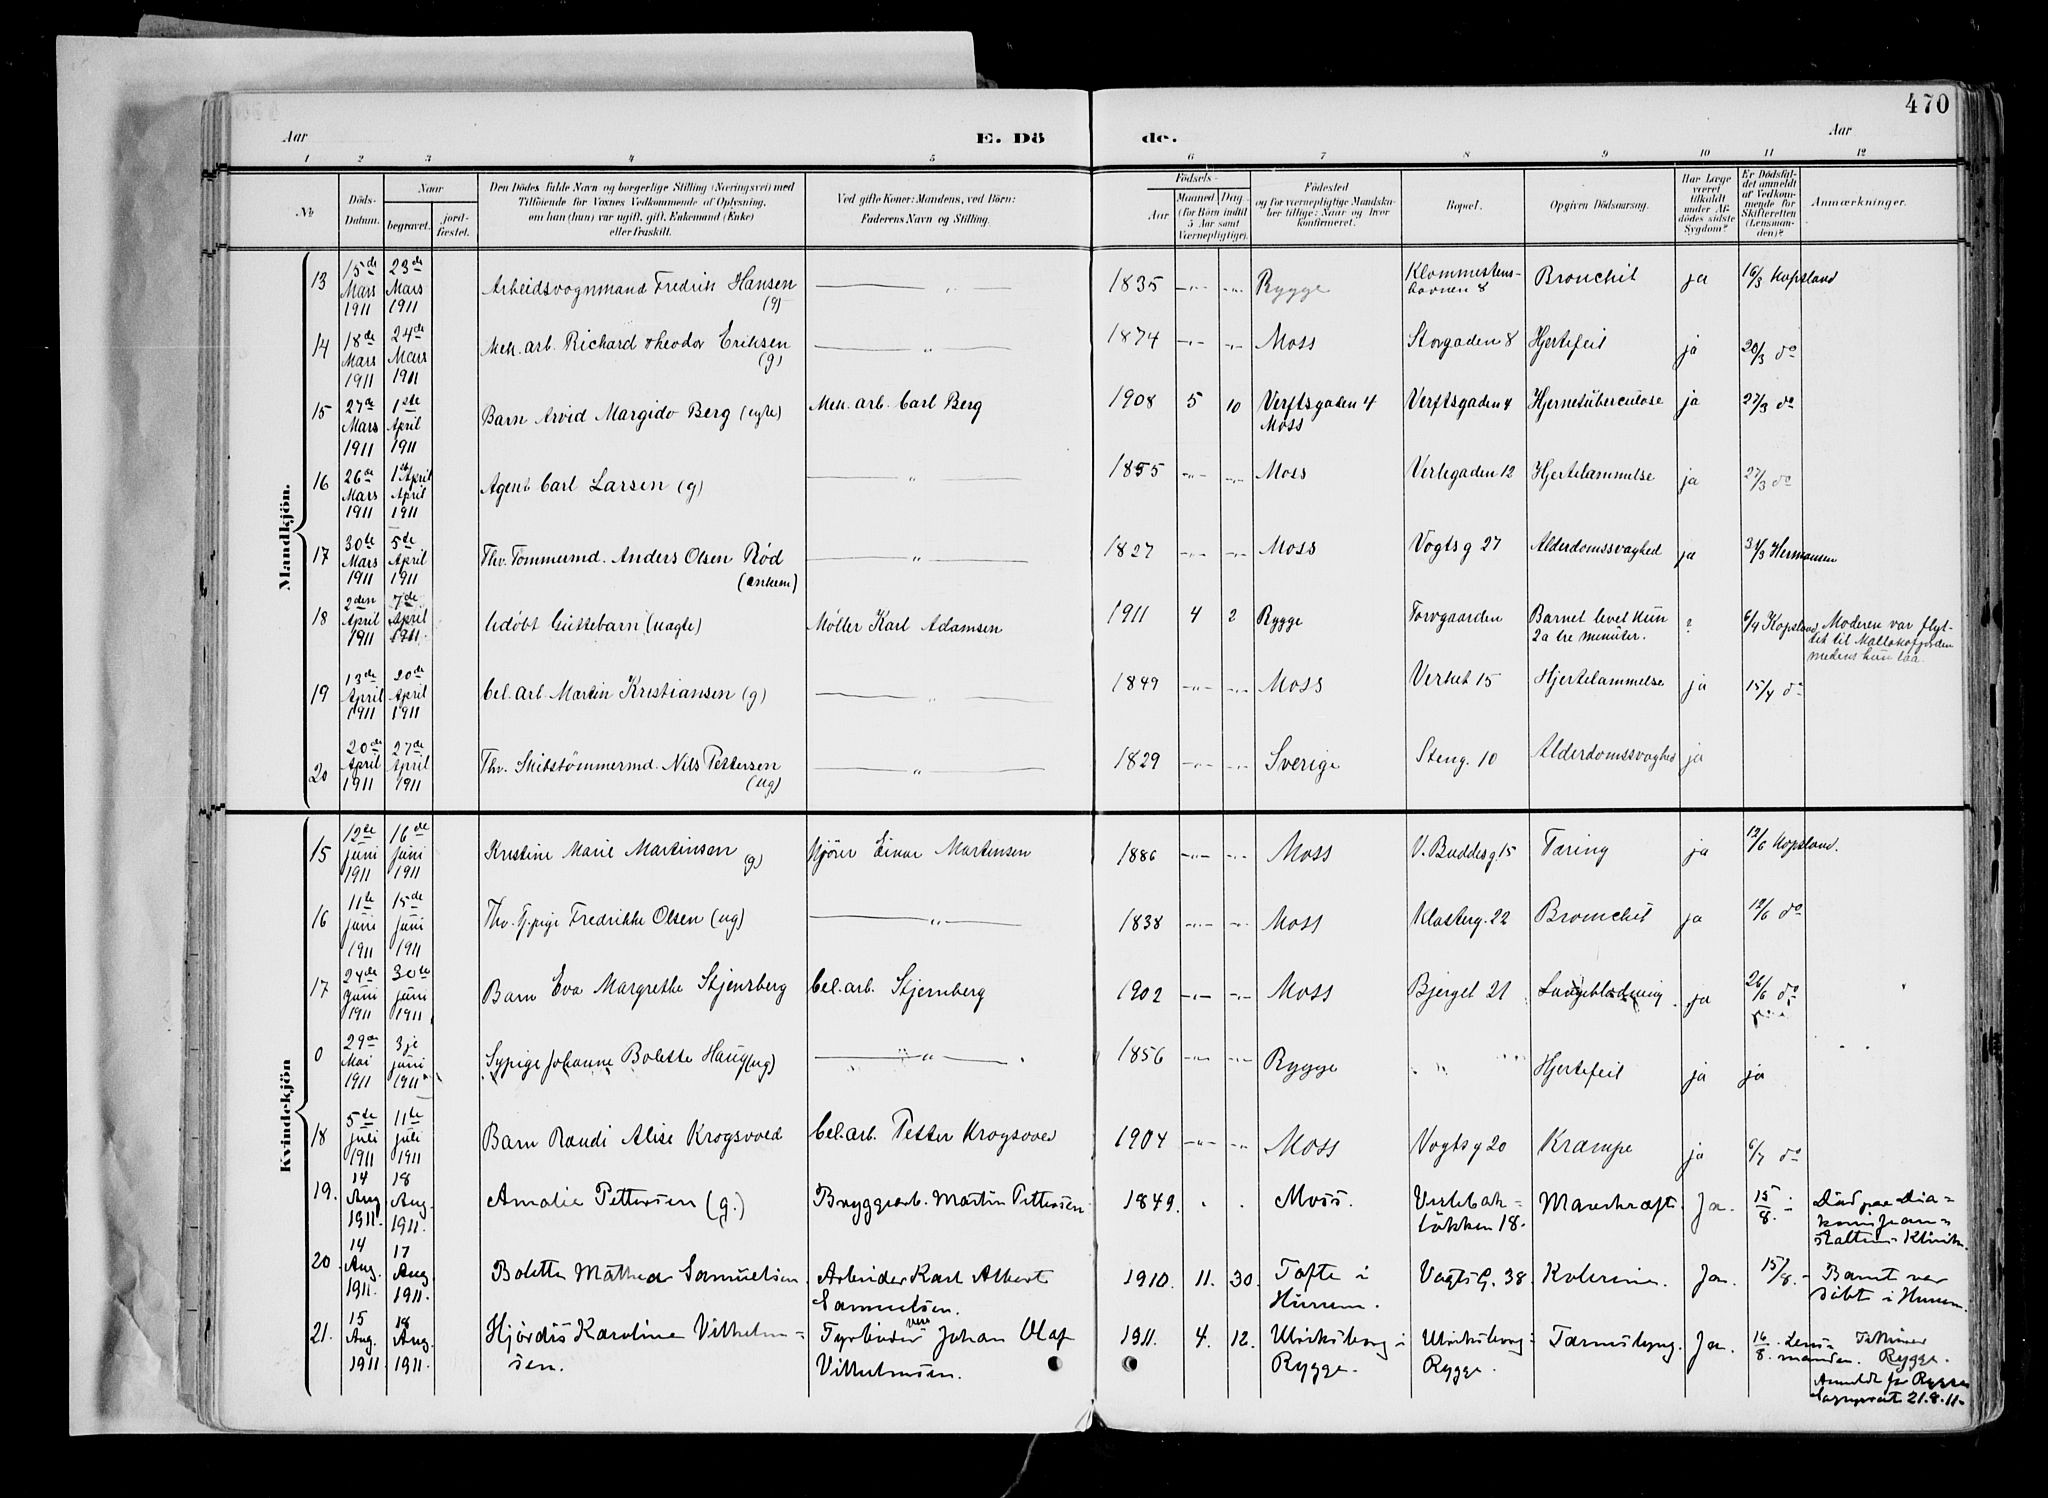 470
Aar
E. Dö
de.
Aar
1 2 3 4 5 6 7 8 9 10 11 12
No
Döds-Datum.
Naar
begravet.
jord-fæstet.
Den Dödes fulde Navn og borgerlige Stilling (Næringsvei) med
Tilföiende for Voxnes Vedkommende af Oplysning,
om han (hun) var ugift, gift, Enkemand (Enke)
eller fraskilt.
Ved gifte Koner: Mandens, ved Börn:
Faderens Navn og Stilling.
Födsels-
Aar
Maaned
Dag
(for Börn indtil
5 Aar samt
Værnepligtige).
Födested
og for værnepligtige Mandska-
ber tillige: Naar og hvor
konfirmeret.
Bopæl.
Opgiven Dödsaarsag.
Har Læge
været
tilkaldt
under Af-
dödes sidste
Sygdom?
Er Dödsfal-
det anmeldt
af Vedkom-
mende for
Skifteretten
(Lensman-
den)?
Anmærkninger.
Mandkjön.
13 15de Mars 1911 23de Mars 1911 Arbeidsvognmand Fredrik Hansen (g) — " — 1835 -"- -"- Rygge Klommestens-
havnen 8 Bronchit ja 16/3 Kopsland
14 18de Mars 1911 24de Mars 1911 Mek. arb. Richard Theodor Eriksen (g) — " — 1874 -"- -"- Moss Storgaden 8 Hjertefeil ja 20/3 do
15 27de Mars 1911 1ste April 1911 Barn Arvid Margido Berg (egte) Mek. arb. Carl Berg 1908 5 10 Verftsgaden 4
Moss Verftsgaden 4 Hjernetüberculose ja 27/3 do
16 26de Mars 1911 1ste April April 1911 Agent Carl Larsen (g) — " — 1855 -"- -"- Moss Verlegaden 12 Hjertelammelse ja 27/3 do
17 30te Mars 1911 5te April 1911 Fhv. Tømmermd. Anders Olsen Rød (enkem) — " — 1827 -"- -"- Moss Vogtsg 27 Alderdomssvaghed ja 31/3 Hermansen
18 2den April 1911 7de April 1911 Udøbt Guttebarn (uagte) Møller Karl Adamsen 1911 4 2 Rygge Torvgaarden Barnet levet kun
2 a tre minuter. ? 6/4 Kopsland Moderen var flyt-
tet til
medens hun laa.
19 13de April 1911 20de April 1911 Cel. arb. Martin Kristiansen (g) — " — 1849 -"- -"- Moss Verket 15 Hjertelammelse ja 15/4 do
20 20de April 1911 27de April 1911 Fhv. Skibstømmermd. Nils Pettersen (ug) — " — 1829 -"- -"- Sverige Steng. 10 Alderdomssvaghed ja
Kvindekjön
15 12te juni 1911 16de juni 1911 Kristine Marie Martinsen (g) Kjører Einar Martinsen 1886 -"- -"- Moss V. Buddesg 15 Tæring ja 12/6 Kopsland.
16 11te juni 1911 15de juni 1911 Fhv. Tj.pige Fredrikke Olsen (ug) — " — 1838 -"- -"- Moss Klosterg. 22 Bronchit ja 12/6 do
17 24de juni 1911 30te juni 1911 Barn Eva Margrethe Stjernberg Cel. arb. Stjernberg 1902 -"- -"- Moss Bjerget 21 ja 26/6 do
0 29de Mai 1911 3je juni 1911 Sypige Johanne Bolette Haug (ug) — " — 1856 -"- -"- Rygge " " Hjertefeil ja ja
18 5te juli 1911 11te juli 1911 Barn Randi Alise Krogsvold Cel. arb. Petter Krogsvold 1904 -"- -"- Moss Vogtsg 20 Krampe ja 6/7 do
19. 14 Aug 1911. 18 Aug. 1911. Amalie Pettersen (g.) Bryggearb. Martin Pettersen 1849. . . Moss. Verlebak-
løkken 18. Mavekræft. Ja. 15/8. - Død paa Dia-
konissean-
staltens Klinik.
20. 14 Aug. 1911. 17 Aug. 1911. Bolette Mathea Samuelsen. Arbeider Karl Albert
Samuelsen. 1910. 11. 30. Tofte i
Hurum. Vogts G. 38. Kolerine. Ja. 15/8. - Barnet var
døbt i Hurum.
21. 15 Aug. 1911. 18 Aug. 1911. Hjørdis Karoline Vilhelm-
sen. Fyrbøder Johan Olaf
Vilhelmsen. 1911. 4. 12. Ulriksborg i
Rygge. Ulriksborg i
Rygge. Tarmslyng. Ja. 16/8. Lens-
manden. Rygge.
Anmeldt for Rygge
Sogneprest 21.8.11.